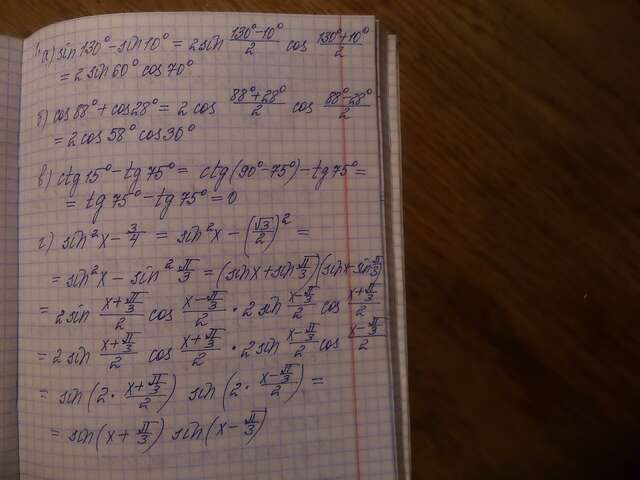 1. а) sin 130° - sin 10° = 2 sin (130° - 10°)/2 cos (130° + 10°)/2
= 2 sin 60° cos 70°
б) cos 88° + cos 28° = 2 cos (88° + 28°)/2 cos (88° - 28°)/2
= 2 cos 58° cos 30°
в) ctg 15° - tg 75° = ctg (90° - 75°) - tg 75° =
= tg 75° - tg 75° = 0
г) sin² x - 3/4 = sin² x - (√3/2)² =
= sin² x - sin² π/3 = (sin x + sin π/3)(sin x - sin π/3)
= 2 sin (x + π/3)/2 cos (x - π/3)/2 · 2 sin (x - π/3)/2 cos (x + π/3)/2
= 2 sin (x + π/3)/2 cos (x + π/3)/2 · 2 sin (x - π/3)/2 cos (x - π/3)/2
= sin (2 · (x + π/3)/2) sin (2 · (x - π/3)/2) =
= sin (x + π/3) sin (x - π/3)